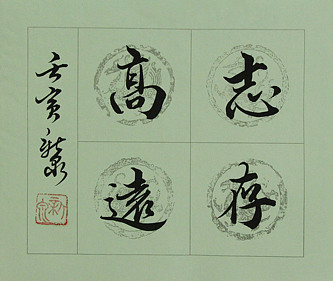 志存
高遠
壬寅